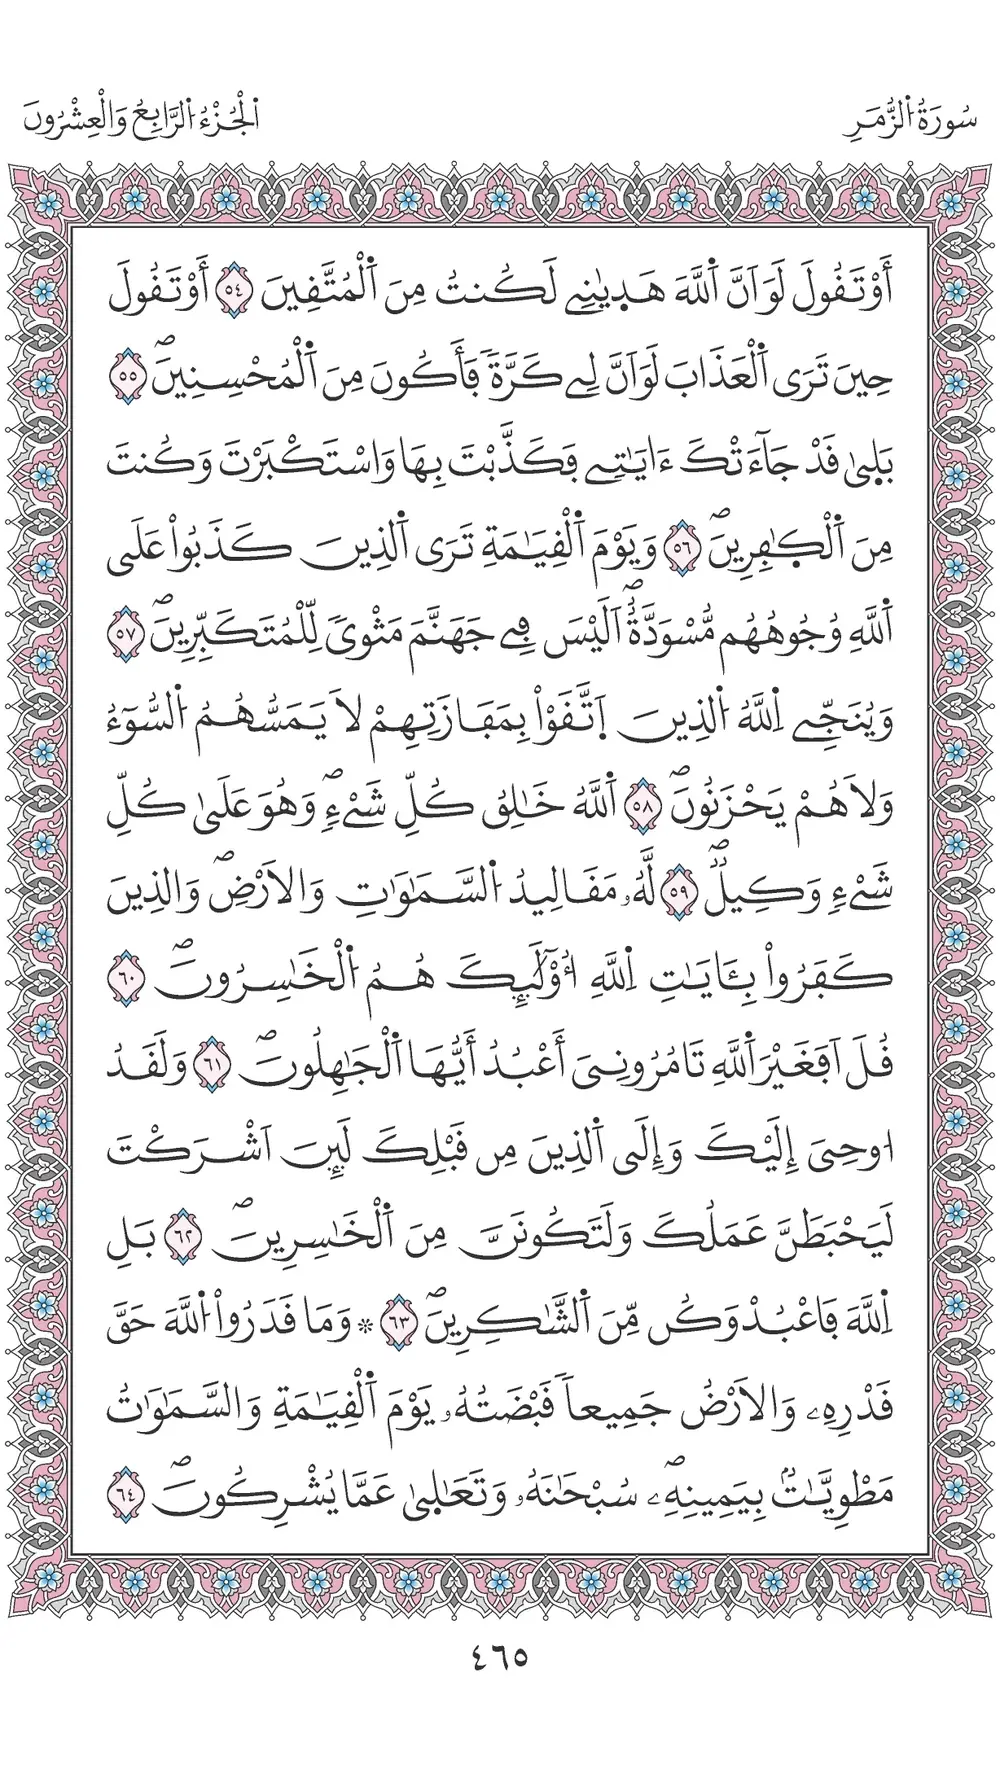 سُورَةُ اُ۬لزُّمَرِ
اَ۬لْجُزْءُ اُ۬لرَّابِعُ وَالْعِشْرُونَ
أَوْ تَقُولَ لَوَ اَنَّ اَ۬للَّهَ هَد۪يٰنِے لَكُنتُ مِنَ اَ۬لْمُتَّقِينَ ٥٤ أَوْ تَقُولَ
حِينَ تَرَى اَ۬لْعَذَابَ لَوَ اَنَّ لِے كَرَّةٗ فَأَكُونَ مِنَ اَ۬لْمُحْسِنِينَۖ ٥٥
بَل۪يٰ قَدْ جَآءَتْكَ ءَايَٰتِے فَكَذَّبْتَ بِهَا وَاسْتَكْبَرْتَ وَكُنتَ
مِنَ اَ۬لْكٰ۪فِرِينَۖ ٥٦ وَيَوْمَ اَ۬لْقِيَٰمَةِ تَرَى اَ۬لذِينَ كَذَبُواْ عَلَى
اَ۬للَّهِ وُجُوهُهُم مُّسْوَدَّةٌۖ اَلَيْسَ فِے جَهَنَّمَ مَثْويٗ لِّلْمُتَكَبِّرِينَۖ ٥٧
وَيُنَجِّے اِ۬للَّهُ اُ۬لذِينَ اَ۪تَّقَوْاْ بِمَفَازَتِهِمْ لَا يَمَسُّهُمُ اُ۬لسُّوٓءُ
وَلَا هُمْ يَحْزَنُونَۖ ٥٨ اَ۬للَّهُ خَٰلِقُ كُلِّ شَےْءٖۖ وَهُوَ عَلَيٰ كُلِّ
شَےْءٖ وَكِيلٞۖ ٥٩ لَّهُۥ مَقَالِيدُ اُ۬لسَّمَٰوَٰتِ وَالَارْضِۖ وَالذِينَ
كَفَرُواْ بِـَٔايَٰتِ اِ۬للَّهِ أُوْلَٰٓئِكَ هُمُ اُ۬لْخَٰسِرُونَۖ ٦٠
قُلَ اَفَغَيْرَ اَ۬للَّهِ تَامُرُونِيَ أَعْبُدُ أَيُّهَا اَ۬لْجَٰهِلُونَۖ ٦١ وَلَقَدُ
ا۟وحِيَ إِلَيْكَ وَإِلَى اَ۬لذِينَ مِن قَبْلِكَ لَئِنَ اَشْرَكْتَ
لَيَحْبَطَنَّ عَمَلُكَ وَلَتَكُونَنَّ مِنَ اَ۬لْخَٰسِرِينَۖ ٦٢ بَلِ
اِ۬للَّهَ فَاعْبُدْ وَكُن مِّنَ اَ۬لشَّٰكِرِينَۖ ٦٣ * وَمَا قَدَرُواْ اُ۬للَّهَ حَقَّ
قَدْرِهِۦ وَالَارْضُ جَمِيعاٗ قَبْضَتُهُۥ يَوْمَ اَ۬لْقِيَٰمَةِ وَالسَّمَٰوَٰتُ
مَطْوِيَّٰتُۢ بِيَمِينِهِۦۖ سُبْحَٰنَهُۥ وَتَعَٰل۪يٰ عَمَّا يُشْرِكُونَۖ ٦٤
٤٦٥